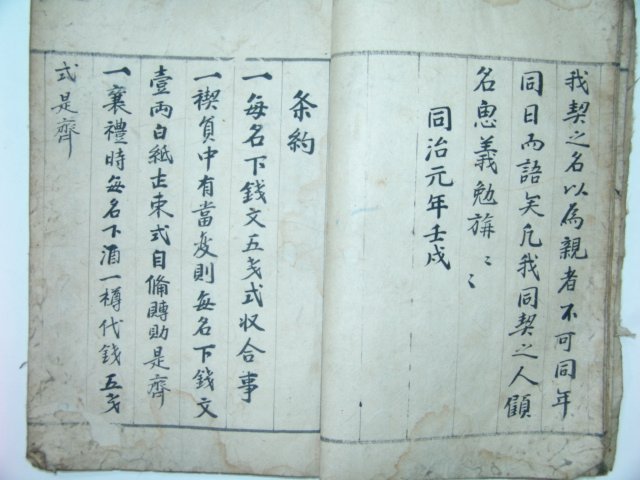 我契之名以為親者不可同年
同日而語矣凡我同契之人顧
名思義勉旃〻〻
同治元年壬戌
条約
一每名下錢文五戔式収合事
一禊負中有當夜則每名下錢文
壹兩白紙壱束式自備賻助是齊
一襄禮時每名下酒一樽代錢五戔
式是齊